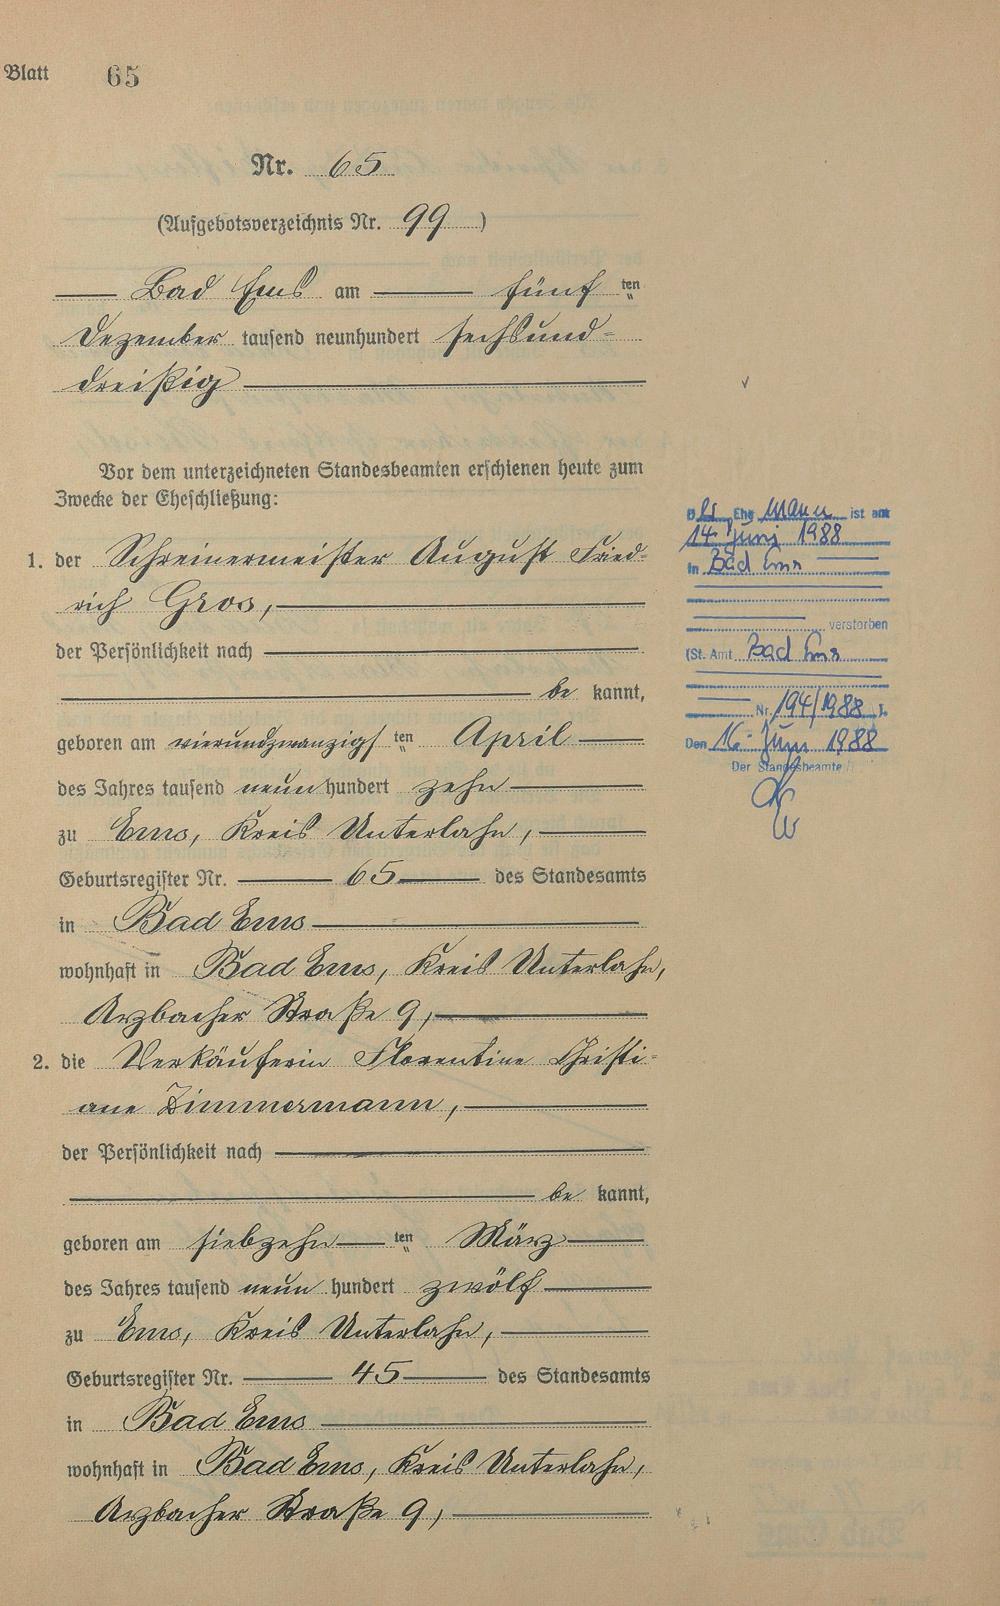 Blatt 65
Nr. 65
(Aufgebotsverzeichnis Nr. 99 )
Bad Ems am fünf ten
Dezember tausend neunhundert sechsund-
dreißig
Vor dem unterzeichneten Standesbeamten erschienen heute zum
Zwecke der Eheschließung:
1. der Schreinermeister August Fried-
rich Gros,
der Persönlichkeit nach
be kannt,
geboren am vierundzwanzigs ten April
des Jahres tausend neun hundert zehn
zu Ems, Kreis Unterlahn,
Geburtsregister Nr. 65 des Standesamts
in Bad Ems
wohnhaft in Bad Ems, Kreis Unterlahn,
Arzbacher Straße 9,
2. die Verkäuferin Florentine Christi-
ane Zimmermann,
der Persönlichkeit nach
be kannt,
geboren am siebzehn ten März
des Jahres tausend neun hundert zwölf
zu Ems, Kreis Unterlahn,
Geburtsregister Nr. 45 des Standesamts
in Bad Ems
wohnhaft in Bad Ems, Kreis Unterlahn,
Arzbacher Straße 9,
Der Ehe mann ist am
14. Juni 1988
in Bad Ems
verstorben
(St. Amt Bad Ems
Nr. 194/1988 ).
Den 16. Juni 1988
Der Standesbeamte